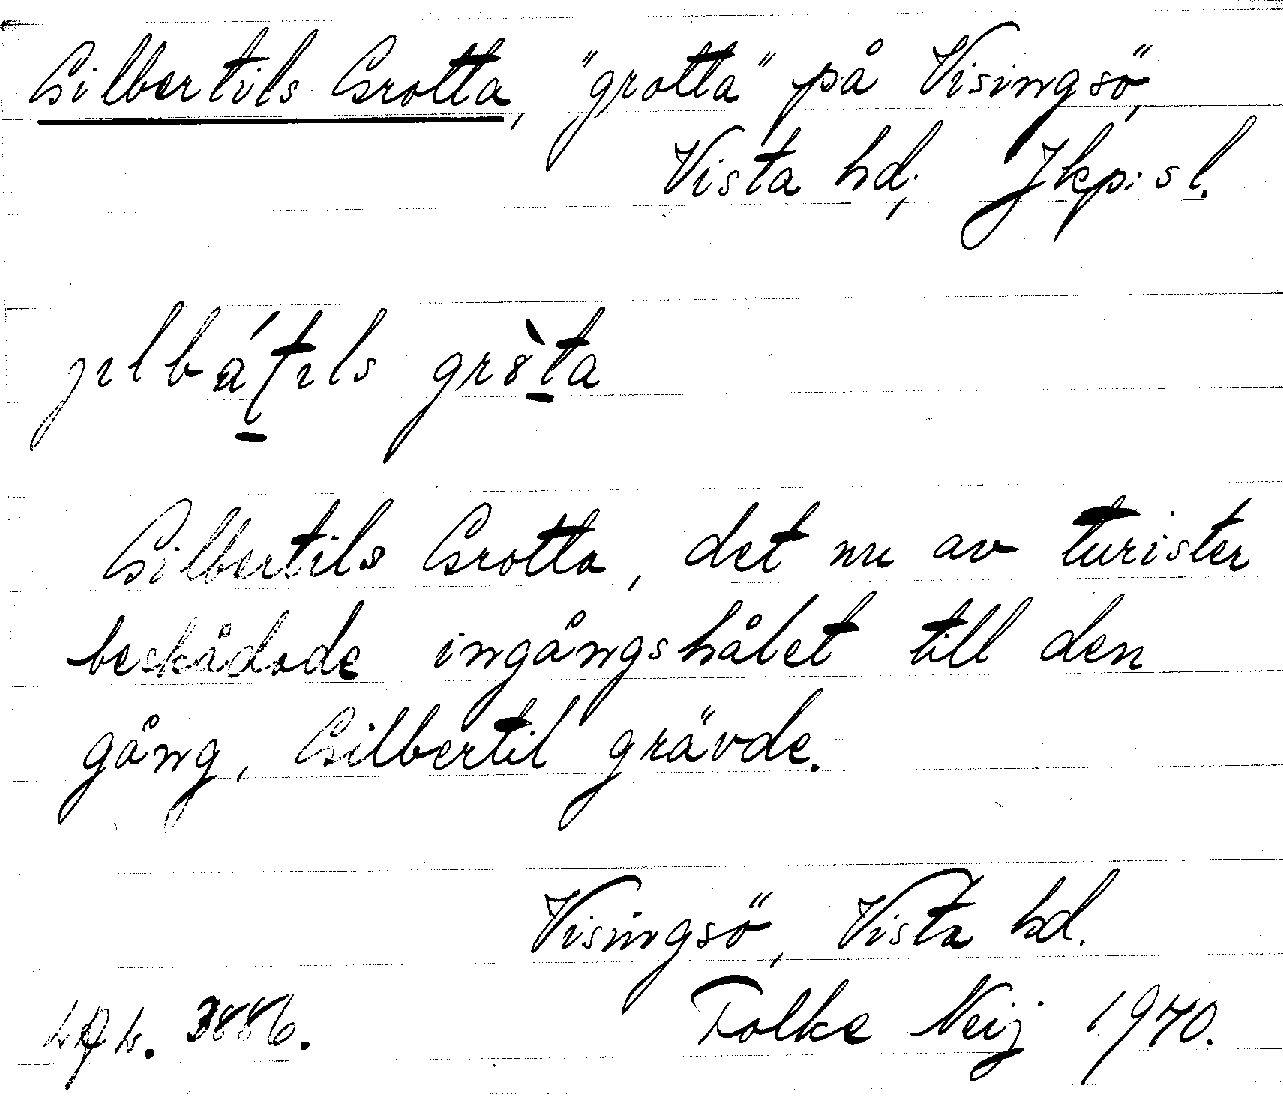 Gilbertils Grotta, "grotta" på Visingsö,
Vista hd; Jkp:s l.
Gilbertils Grotta, det nu av turister
beskådade ingångshålet till den
gång, Gilbertil grävde.
Visingsö, Vista hd.
3886. Folke Neij 1940.